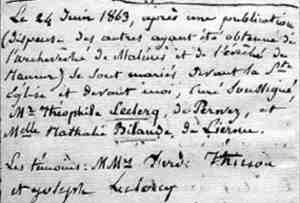 Le 24 Juin 1863, après une publication
(dispense des autres ayant été obtenue de
l'archevêché de Malines et de l'évêché de
Namur) se sont mariés devant la Ste
Eglise et devant moi, curé soussigné,
Mr Théophile Leclercq, de Perwez, et
Melle Nathalie Bilande, de Lierme.
Les témoins: MMrs Ferd: Thirion
et Joseph Leclercq